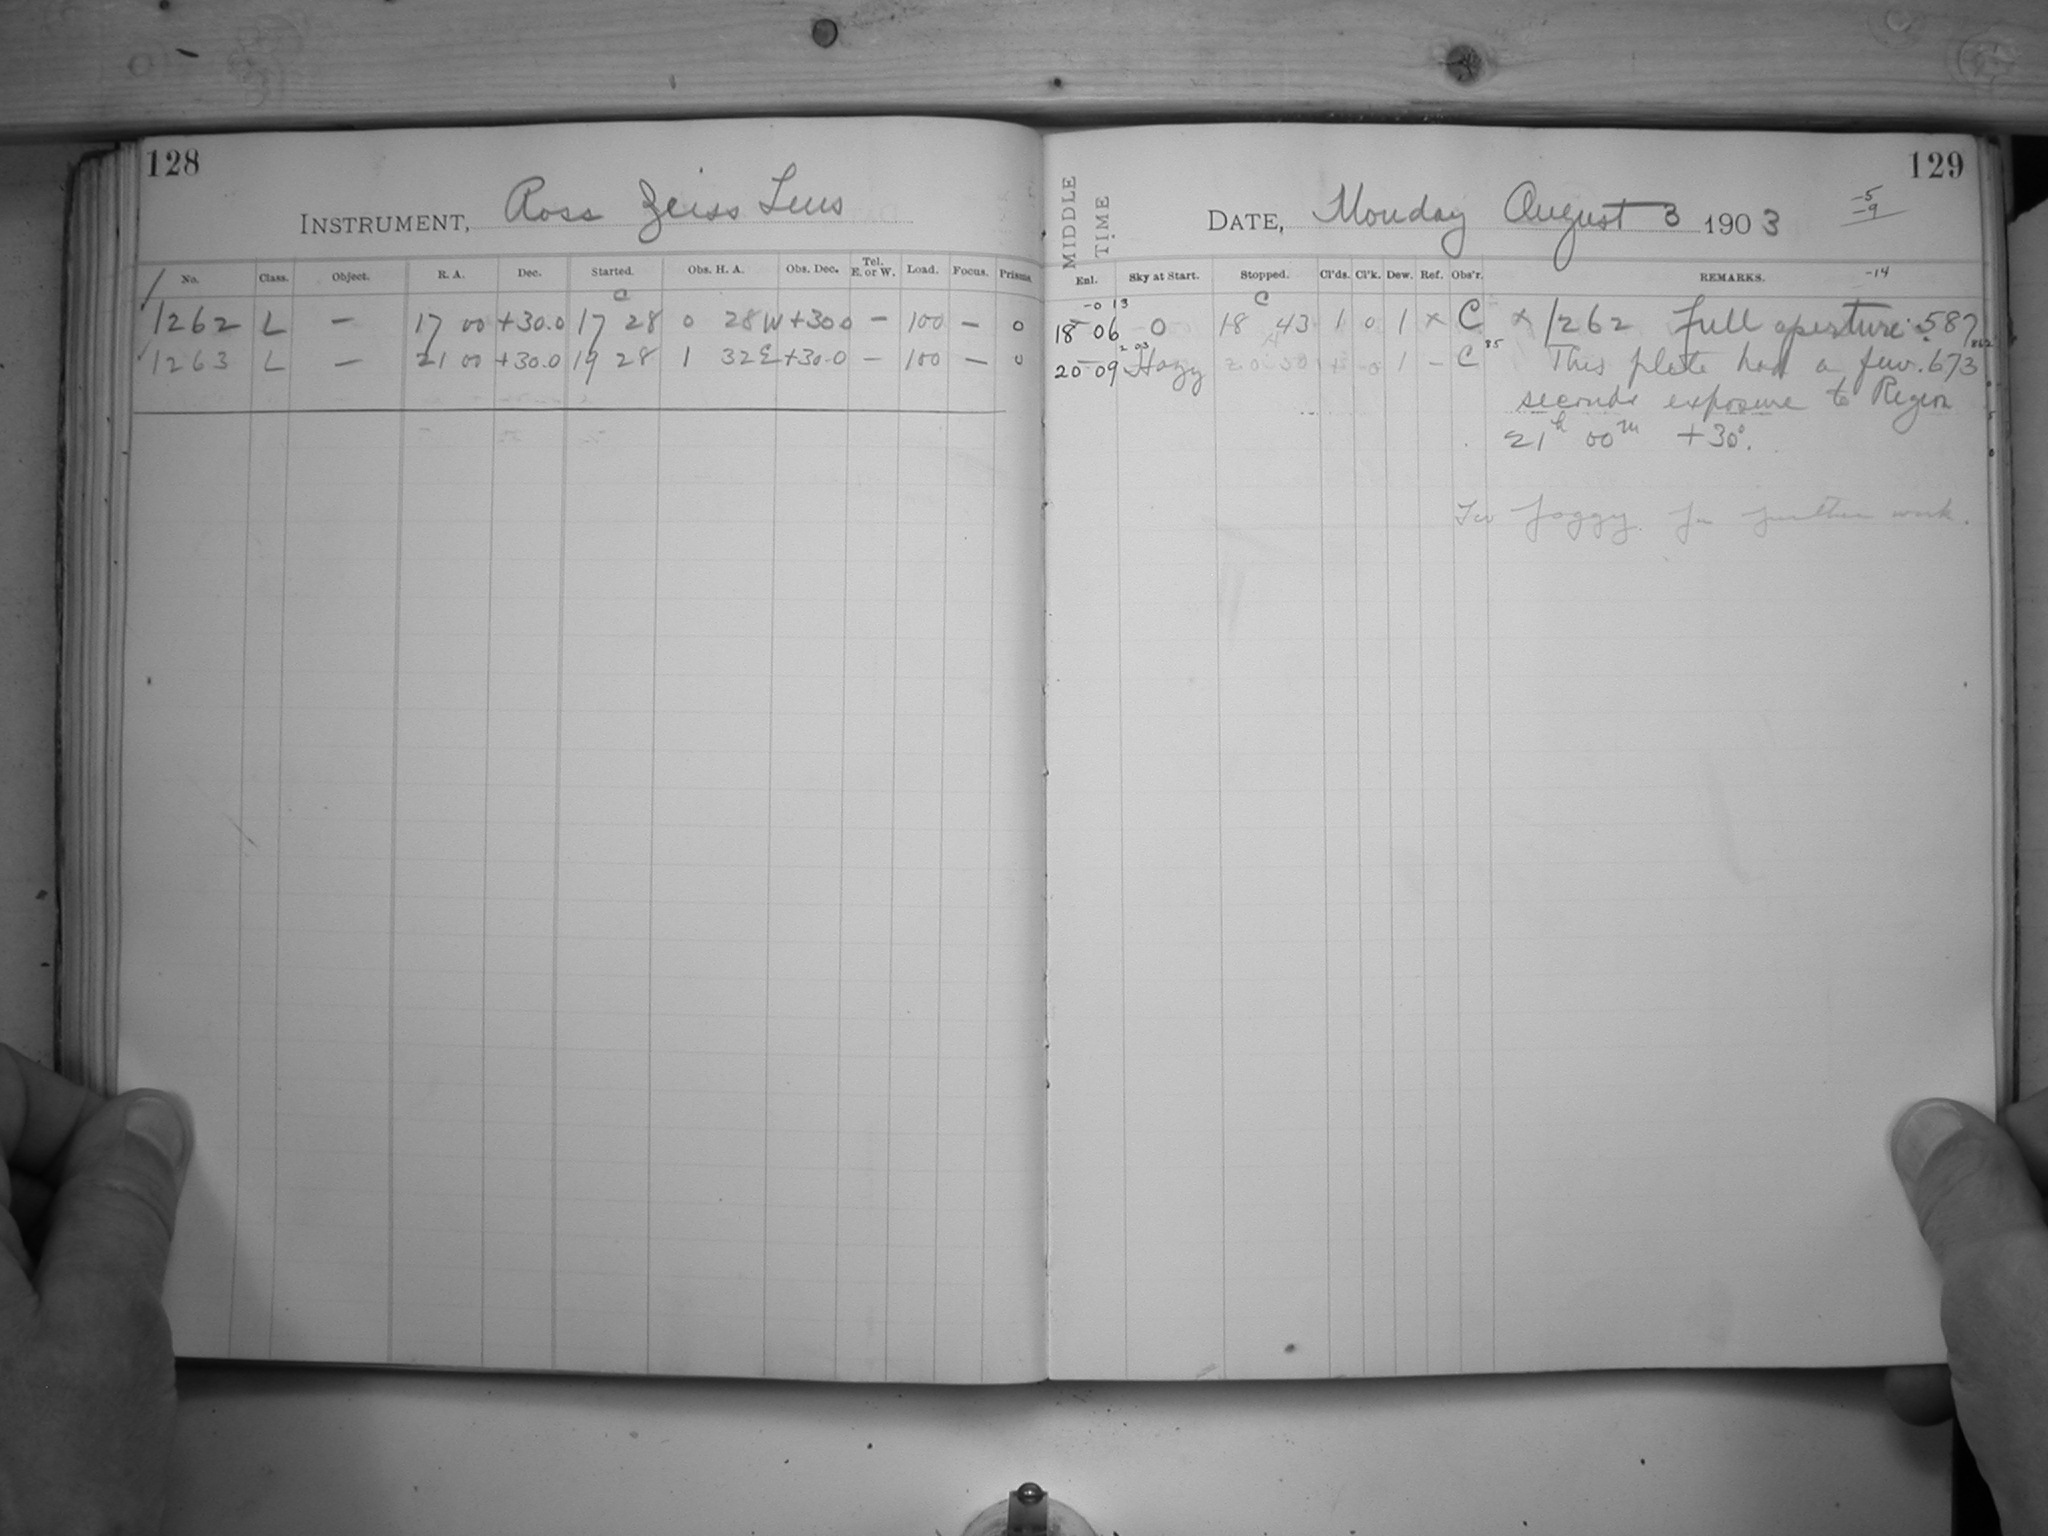 128
INSTRUMENT, Ross Zeiss Lens
No. Class. Object. R. A. Dec. Started. Obs. H. A. Obs. Dec. Tel. E. or W. Load. Focus. Prisms
C
1262 L — 17 00 +30.0 17 28 0 28W +30.0 — 100 — 0
1263 L — 21 00 +30.0 19 28 1 32E +30.0 — 100 — 0
129
MIDDLE TIME
DATE, Monday August 3 1903
-5
-9
-14
Enl. Sky at Start. Stopped. Cl'ds. Cl'k. Dew. Ref. Obs'r. REMARKS.
-0 13 C
18 06 0 18 43 1 0 1 x C x 1262 full aperture .587
20 09 Hazy 20 50 0 1 – C This plate had a few .673
seconds exposure to Region
21h 00m +30°.
Too foggy for further work.